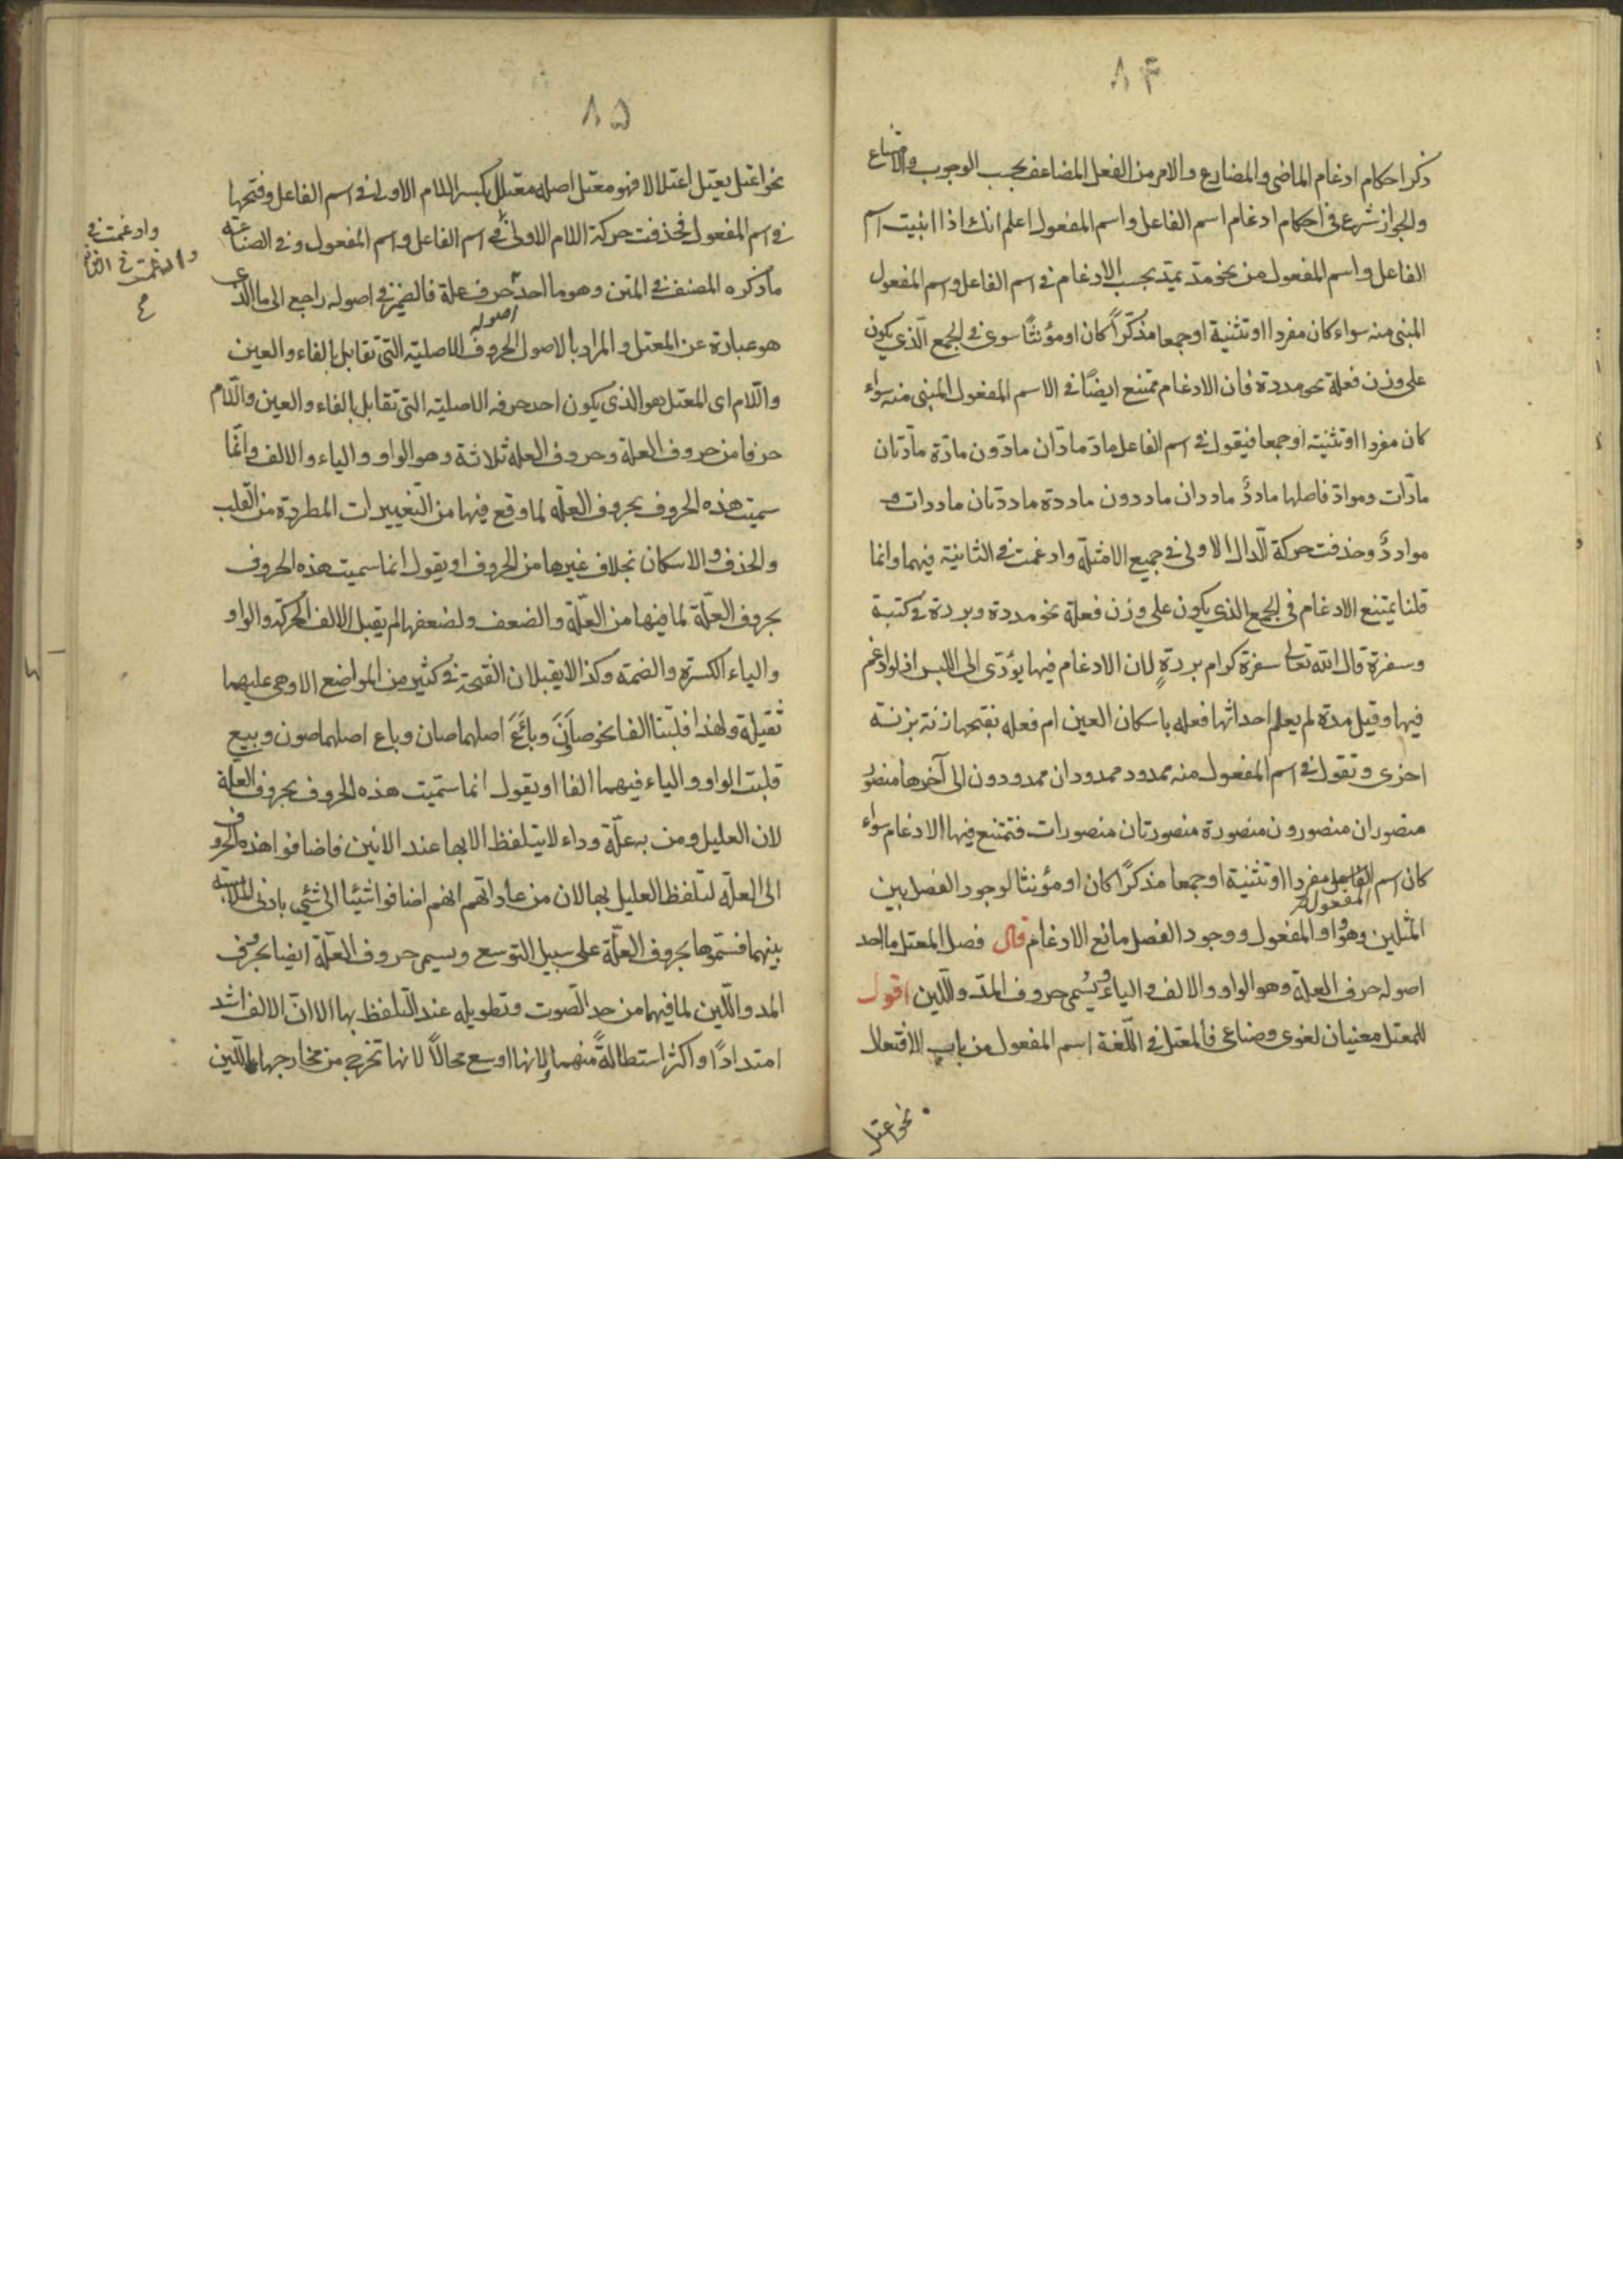 ٨٤
ذكر احكام ادغام الماضى والمضارع والامر من الفعل المضاعف بحسب الوجوب والامتناع
والجواز شرع فى احكام ادغام اسم الفاعل واسم المفعول اعلم انك اذا ابنيت اسم
الفاعل واسم المفعول من نحو مدّ يمدّ يجب الادغام فى اسم الفاعل واسم المفعول
المبنى منه سواء كان مفردا او تثنية او جمعا مذكّراً كان او مؤنثاً سوى فى الجمع الّذى يكون
على وزن فعلة نحو مددة فان الادغام ممتنع ايضاً فى الاسم المفعول المبنى منه سواء
كان مفردا او تثنية او جمعا فيقول فى اسم الفاعل مادّ مادّان مادّون مادّة مادّتان
مادّات وموادّ فاصلها ماددٌ ماددان ماددون ماددة ماددتان ماددات و
مواددٌ وحذفت حركة الّدال الاولى فى جميع الامثلة وادغمت فى الثانية فيهما وانما
قلنا يمتنع الادغام فى الجمع الذى يكون على وزن فعلة نحو مددة وبررة وكتبة
وسفرة قال الله تعالى سفرة كرام بررةٍ لان الادغام فيها يؤدّى الى اللبس اذ لو ادغم
فيها وقيل مدة لم يعلم احداثها فعله باسكان العين ام فعله بفتحها زنة بزنة
اخرى وتقول فى اسم المفعول منه ممدود ممدودان ممدودون الى آخرها منصور
منصوران منصورون منصورة منصورتان منصورات فتمتنع فيها الادغام سواء
كان اسم المفعول مفردا او تثنية او جمعا مذكرًا كان او مؤنثا لوجود الفصل بين
المثلين وهو واو المفعول ووجود الفصل مانع الادغام قال فصل المعتل ما احد
اصوله حرف العلة وهو الواو والالف والياء ويُسُمى حروف المدّ والّلين اقول
للمعتل معنيان لغوى وصناعى فالمعتل فى اللّغة اسم المفعول من باب الافتعال
نحو اعتل
٨٥
نحو اعتل يعتل اعتلالا فهو معتل اصله معتلل بكسر اللام الاولى فى اسم الفاعل وفتحها
فى اسم المفعول فحذفت حركة اللام الاولى فى اسم الفاعل واسم المفعول وفى الصناعة
ما ذكره المصنف فى المتن وهو ما احد اصوله حرف علة فالضمير فى اصوله راجع الى ما الذى
هو عبارة عن المعتل والمراد بالاصول الحروف الاصلية التى تقابل بالفاء والعين
والّلام اى المعتل هو الذى يكون احد حرفه الاصلية التى تقابل بالفاء والعين والّلام
حرفا من حروف العلة وحروف العلة ثلاثة وهو الواو والياء والالف وانّما
سميت هذه الحروف بحروف العلّة لما وقع فيها من التّغييرات المطردة من القلب
والحذف والاسكان بخلاف غيرها من الحروف او يقول انما سميت هذه الحروف
بحروف العلّة لما فيها من العلّة والضعف ولضعفها لم يقبل الالف الحركة والواو
والياء الكسرة والضمة وكذا لا يقبلان الفتحة فى كثير من المواضع الا وهى عليهما
ثقيلة ولهذا قلبتا الفا نحو صاَنَ وباَعَ اصلهما صان وباع اصلهما صون وبيع
قلبت الواو والياء فيهما الفا او يقول انما سميت هذه الحروف بحروف العلة
لان العليل ومن به علّة وداء لا يتلفظ الا بها عند الانين فاضافوا هذه الحروف
الى العلّة لتلفظ العليل بها لان من عاداتهم انهم اضافوا شيئا الى شئى بادنى الملابسة
بينهما فسمّوها بحروف العلّة على سبيل التوسع ويسمى حروف العلّة ايضا بحروف
المد والّلين لما فيهما من حد الصّوت وتطويله عند التلفظ بها الا انّ الالف اشد
امتدادًا واكثر استطالةً منهما لانها اوسع محالاً لانها تخرج من مخارجها باللين
وادغمت فى
وادغمت فى